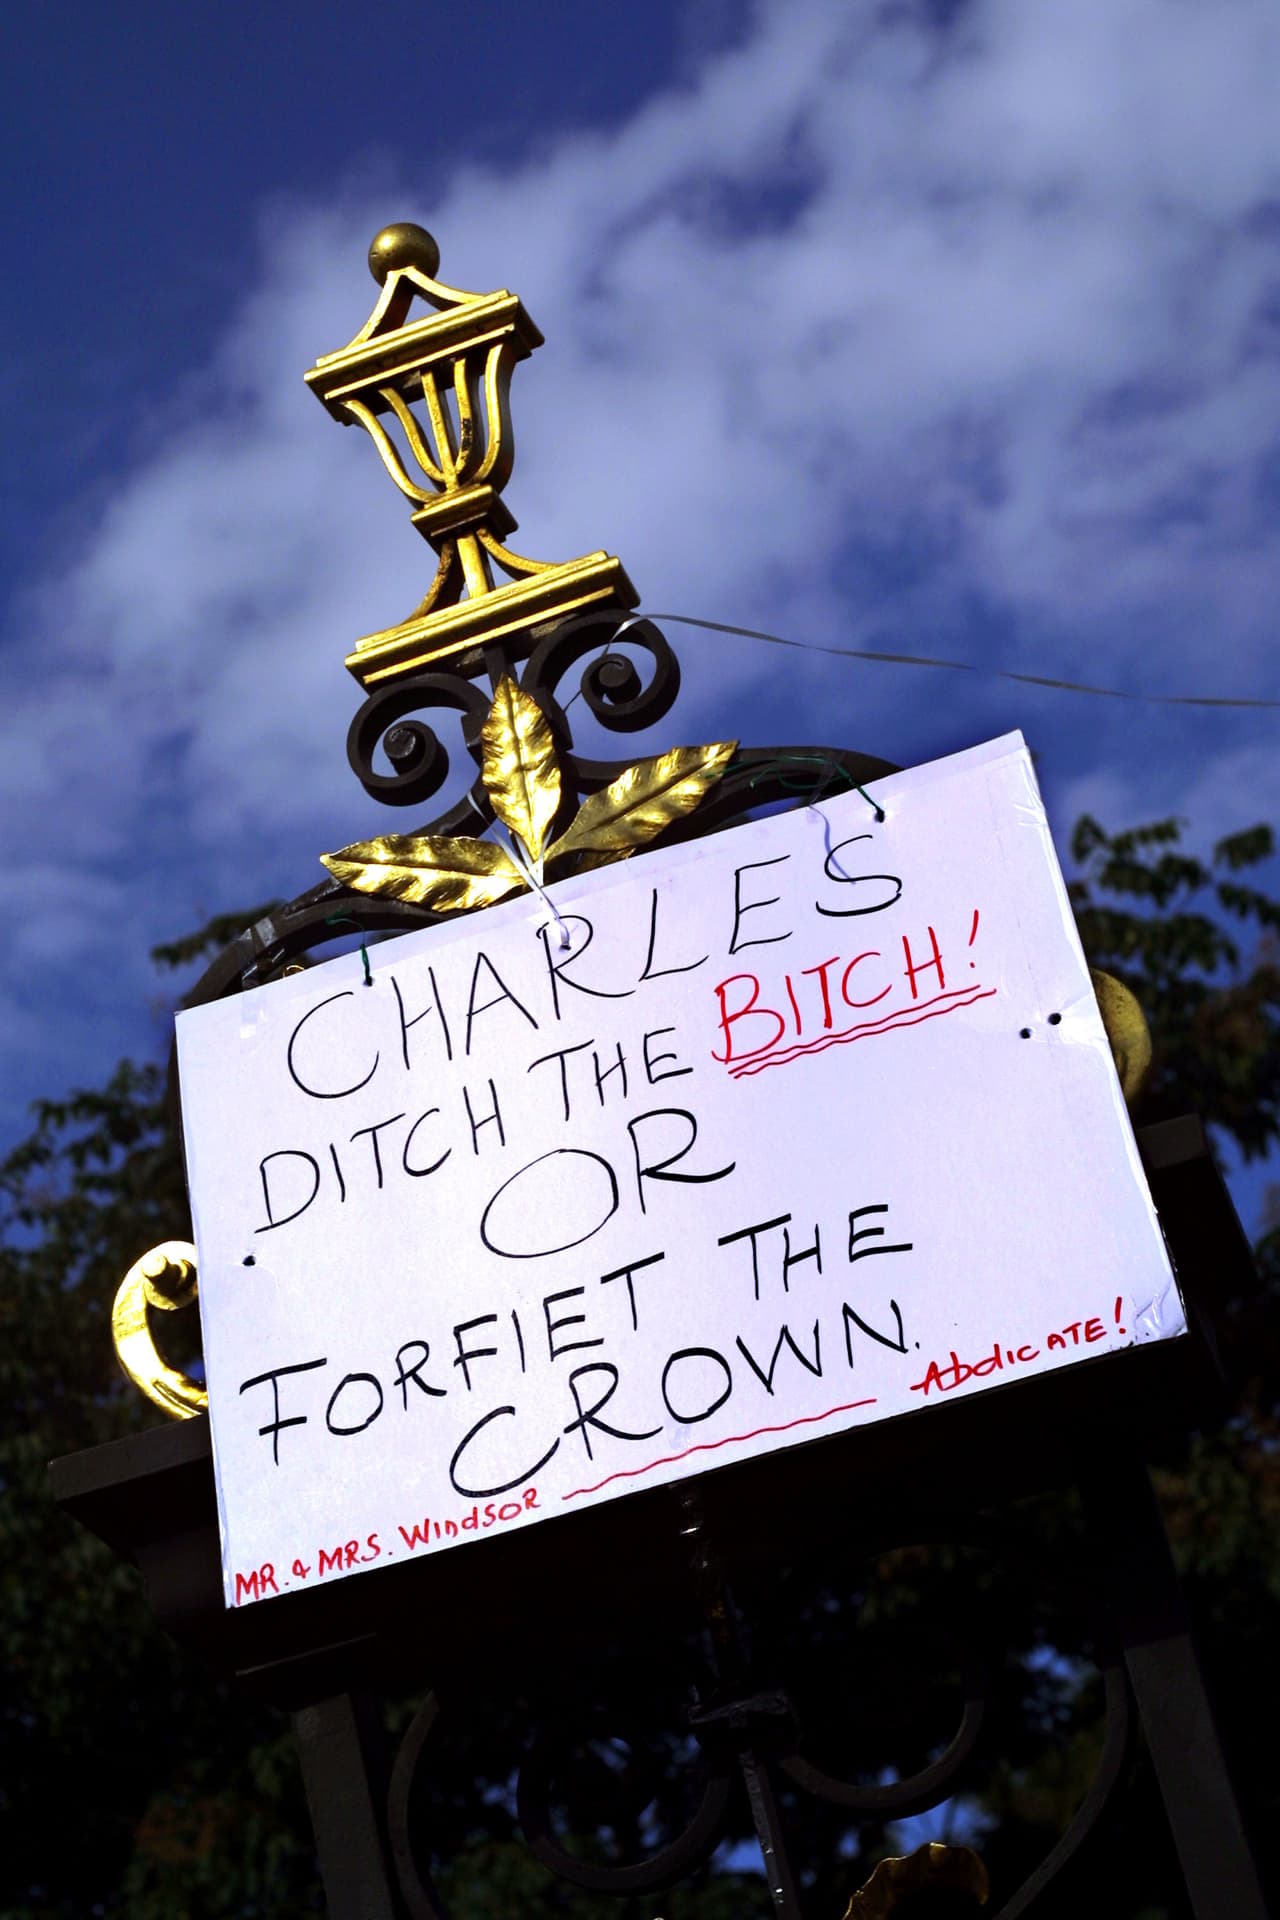 CHARLES
DITCH THE BITCH!
OR
FORFIET THE
CROWN.
Abdicate!
MR. & MRS. WindSOR